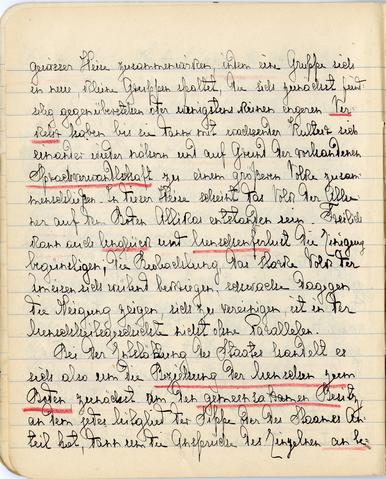 gewisser Weise zusammenwirken, indem eine Gruppe sich
in neue kleine Gruppen spaltet, die sich zunächst feind-
selig gegenüberstehen oder wenigstens keinen engeren Ver-
kehr haben bis sie dann mit wachsender Kultur sich
einander wieder nähern und auf Grund der vorhandenen
Sprachverwandtschaft zu einem größeren Volke zusam-
menschließen. In dieser Weise scheint das Volk der
auf dem Boden entstanden sein. Freilich
kann auch Unglück und Menschenfurcht die Neigung
begünstigen, die Beobachtung, das starke Volk der
sich bekriegen, schwache dagegen
die Neigung zeigen, sich zu vereinigen, ist in der
Menschheitsgeschichte nicht ohne Parallelen.
Bei der Entstehung des Staates handelt es
sich also um die Beziehung der Menschen zum
Boden zunächst um den gemeinsamen Besitz,
an dem jedes Mitglied der Sippe oder des Stammes An-
teil hat, dann um die Ansprüche des Einzelnen an be-